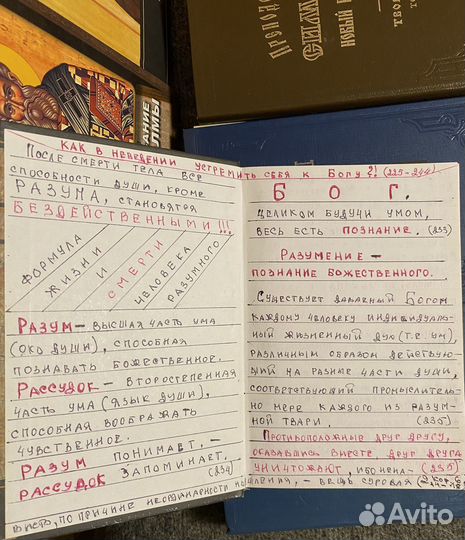 ПРЕПОДО
СИМЕ
НОВЫЙ
ТВО
КАК В НЕВЕДЕНИИ УСТРЕМИТЬ СЕБЯ К БОГУ?! (225-244)
ПОСЛЕ СМЕРТИ ТЕЛА ВСЕ
СПОСОБНОСТИ ДУШИ, КРОМЕ
РАЗУМА, СТАНОВЯТСЯ
БЕЗДЕЙСТВЕННЫМИ!!!
ФОРМУЛА
ЖИЗНИ
И
СМЕРТИ
ЧЕЛОВЕКА
РАЗУМНОГО
РАЗУМ – ВЫСШАЯ ЧАСТЬ УМА
(ОКО ДУШИ), СПОСОБНАЯ
ПОЗНАВАТЬ БОЖЕСТВЕННОЕ.
РАССУДОК – ВТОРОСТЕПЕННАЯ
ЧАСТЬ УМА (ЯЗЫК ДУШИ),
СПОСОБНАЯ ВООБРАЖАТЬ
ЧУВСТВЕННОЕ.
РАЗУМ ПОНИМАЕТ, –
РАССУДОК ЗАПОМИНАЕТ. (234)
ВИСТЬ, ПО ПРИЧИНЕ НЕОРДИНАРНОСТИ
Б О Г.
ЦЕЛИКОМ БУДУЧИ УМОМ,
ВЕСЬ ЕСТЬ ПОЗНАНИЕ. (233)
РАЗУМЕНИЕ –
ПОЗНАНИЕ БОЖЕСТВЕННОГО.
СУЩЕСТВУЕТ ДАВАЕМЫЙ БОГОМ
КАЖДОМУ ЧЕЛОВЕКУ ИНДИВИДУАЛЬ-
НЫЙ ЖИЗНЕННЫЙ ДУХ (Т.Е. УМ),
РАЗЛИЧНЫМ ОБРАЗОМ ДЕЙСТВУЮ-
ЩИЙ НА РАЗНЫЕ ЧАСТИ ДУШИ,
СООТВЕТСТВУЮЩИЙ ПРОМЫСЛИТЕЛЬ-
НО МЕРЕ КАЖДОГО ИЗ РАЗУМ-
НОЙ ТВАРИ. (235)
ПРОТИВОПОЛОЖНЫЕ ДРУГ ДРУГУ,
ОКАЗАВШИСЬ ВМЕСТЕ, ДРУГ ДРУГА
УНИЧТОЖАЮТ, ИБО НЕНА- (235)
– ВЕЩЬ СУРОВАЯ
Avito